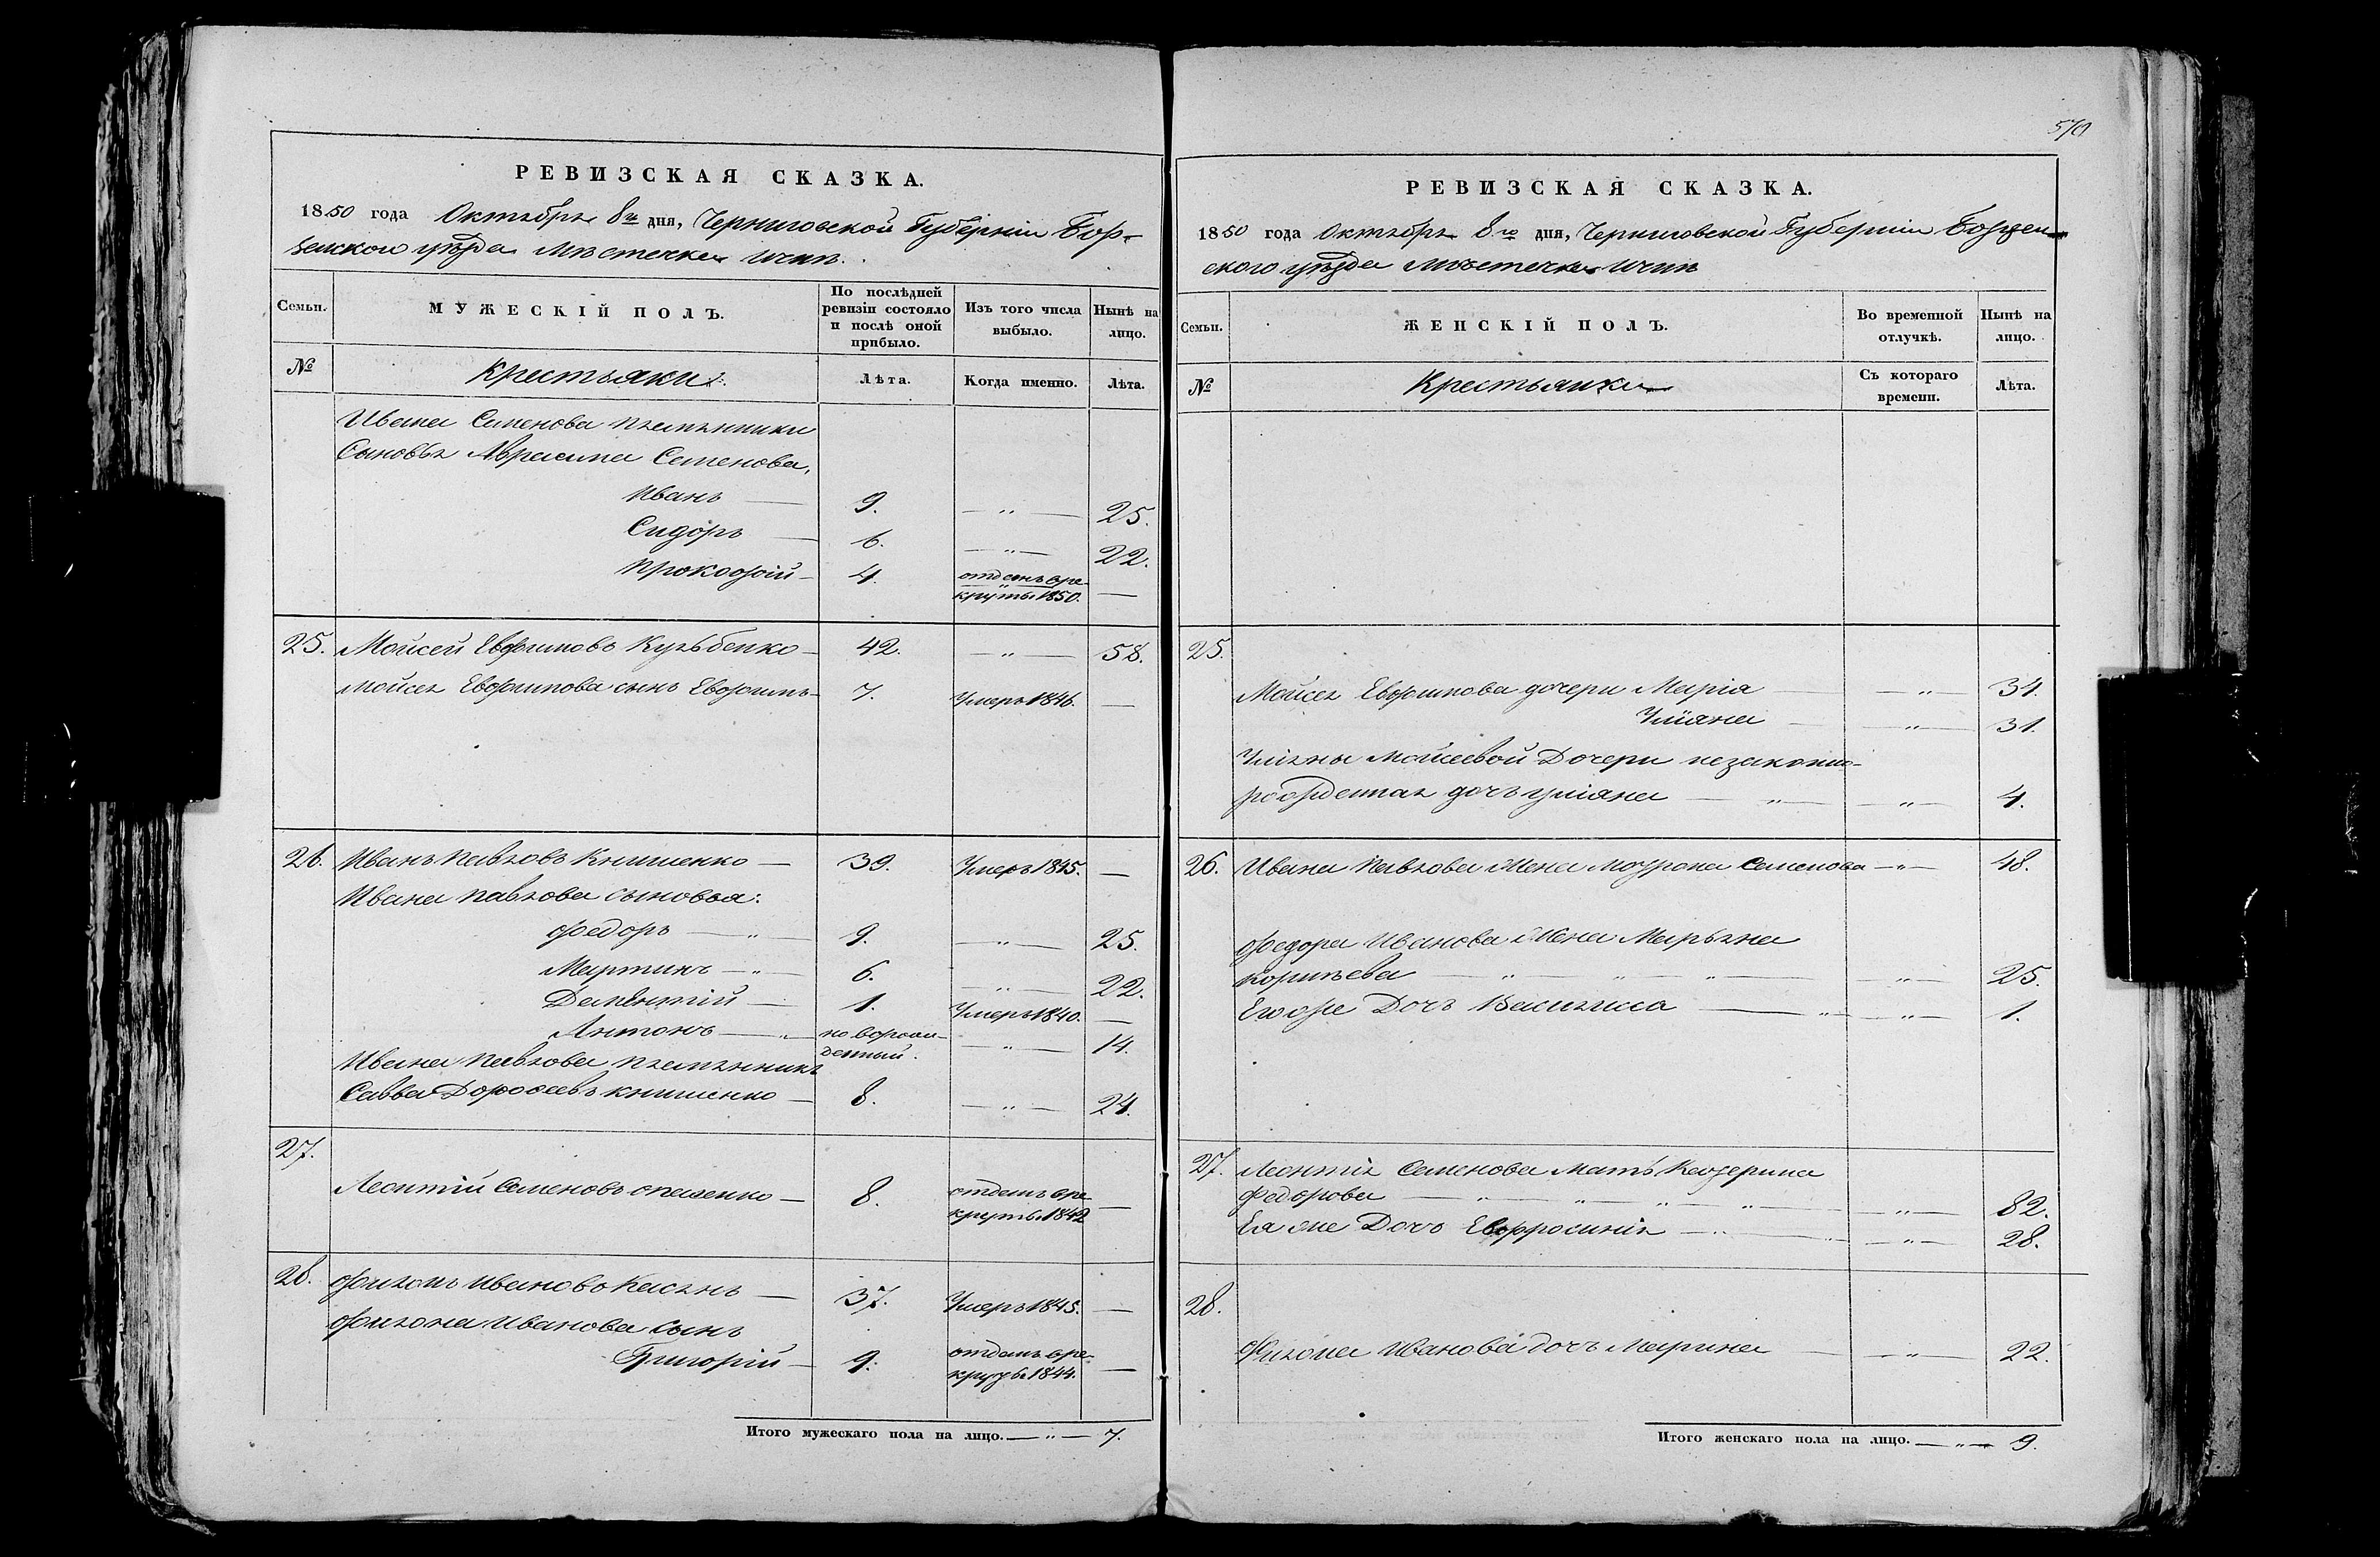 РЕВИЗСКАЯ СКАЗКА.
1850 года Октября 8го дня, Черниговской Губерніи Бор-
зенского уѣзда Мѣстечка Ични.
Семьи. МУЖЕСКІЙ ПОЛЪ. По послѣдней ревизіи состояло и послѣ оной прибыло. Изъ того числа выбыло. Нынѣ на лицо.
№ Крестьяни: Лѣта. Когда именно. Лѣта.
Ивана Семенова племянники
Сыновья Аврама Семенова,
Иванъ — 9. — „ — 25.
Сидоръ — 6. — „ — 22.
Прокофій — 4. отданъ в ре-
круты 1850. —
25. Мойсей Евфимовъ — 42. — „ — 58.
Мойсея Евфимова сынъ Евфимъ — 7. Умеръ 1846. —
26. Иванъ Павловъ Книшенко — 39. Умеръ 1845. —
Ивана Павлова сыновья:
Федоръ — „ — 9. — „ — 25.
Мартинъ — „ — 6. — „ — 22.
Дементій — 1. Умеръ 1840. —
Антонъ — „ — новорож-
денный. — „ — 14.
Ивана Павлова племянникъ
Савва Дорофеевъ Книшенко — 8. — „ — 24.
27.
Леонтій Семеновъ — 8. отданъ в ре-
круты 1842 —
28. Филонъ Ивановъ Касянъ — 37. Умеръ 1845. —
Филона Иванова Сынъ
Григорій — 9. отданъ в ре-
круты 1844. —
Итого мужескаго пола на лицо. — „ — 7.
570
РЕВИЗСКАЯ СКАЗКА.
1850 года Октября 8го дня, Черниговской Губерніи Борзен-
ского уѣзда Мѣстечка Ични
Семьи. ЖЕНСКІЙ ПОЛЪ. Во временной отлучкѣ. Нынѣ на лицо.
№ Крестьянки Съ котораго времени. Лѣта.
25.
Мойсея Евфимова дочери Марія — „ — 34.
Уліяна — „ — 31.
Уліяны Мойсеевой Дочери незаконно-
рожденная дочь Уліяна — „ — „ — 4.
26. Ивана Павлова Жена Мотрона Семенова — „ — 48.
Федора Иванова Жена Марьяна
Корнѣева — „ — „ — „ — „ — 25.
Его же Дочь Василиса — „ — „ — 1.
27. Леонтія Семенова Мать Катерина
Федорова — „ — „ — „ — „ — „ — 82.
Ея же Дочь Евфросинія — „ — „ — „ — 28.
28.
Филона Иванова дочь Марина — „ — 22.
Итого женскаго пола на лицо. — „ — 9.